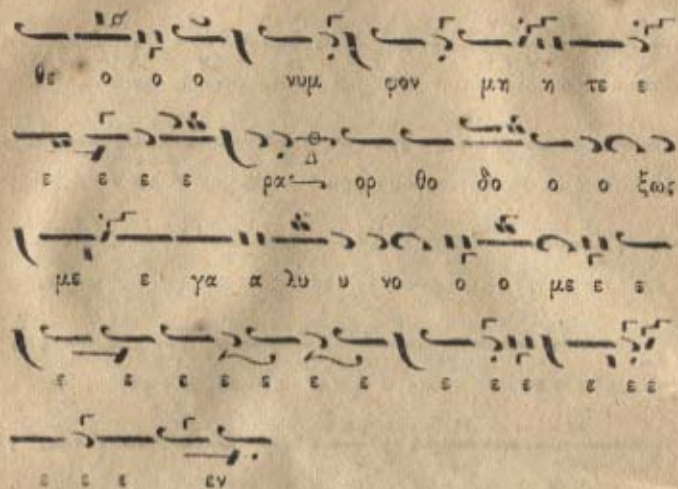 θε ο ο ο νυμ φον μη η τε ε
ε ε ε ε ρα ορ θο δο ο ο ξως
με ε γα α λυ υ νο ο ο με ε ε
ε ε ε ε ε ε ε ε ε ε ε ε ε
ε ε ε εν